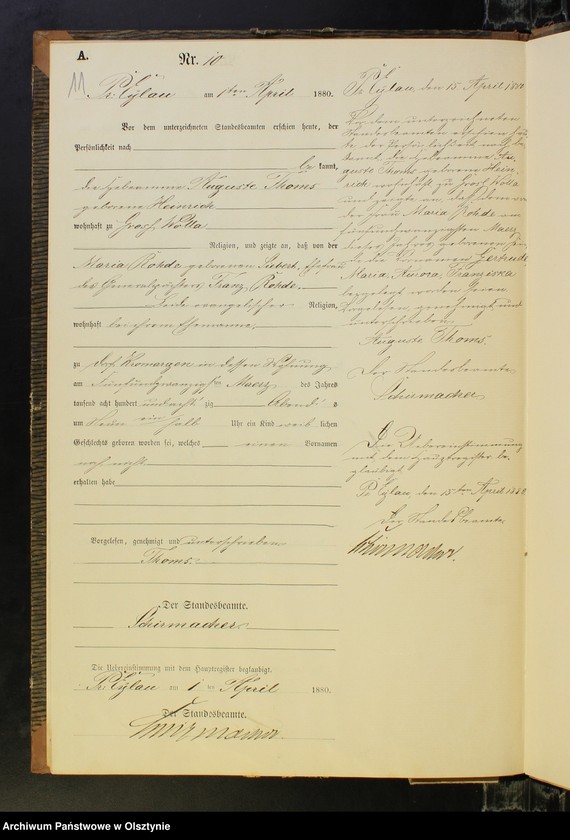 A.
Nr. 10
11
Pr. Eylau am 1ten April 1880.
Vor dem unterzeichneten Standesbeamten erschien heute, der
Persönlichkeit nach
be kannt,
die Hebamme Auguste Thoms
geborene Heinrich
wohnhaft zu Groß Wolla
Religion, und zeigte an, daß von der
Maria Rohde geborenen Siebert, Ehefrau
des Generalpächters Franz Rohde
beide evangelischer Religion,
wohnhaft bei ihrem Ehemanne
zu Dorf in dessen Wohnung
am fünfundzwanzigsten Maerz des Jahres
tausend acht hundert und acht zig Abends
um Neun ein halb Uhr ein Kind weib lichen
Geschlechts geboren worden sei, welches einen Vornamen
noch nicht
erhalten habe
Vorgelesen, genehmigt und unterschrieben
Thoms.
Der Standesbeamte.
Schirmacher.
Die Uebereinstimmung mit dem Hauptregister beglaubigt.
Pr. Eylau am 1 ten April 1880.
Der Standesbeamte.
Schirmacher.
Pr. Eylau, den 15. April 1880
Vor dem unterzeichneten
Standesbeamten erschien heu-
te, der Persönlichkeit nach be-
kannt, die Hebamme Au-
guste Thoms geborene Hein-
rich wohnhaft zu Groß Wolla
und zeigte an, daß dem von
der Frau Maria Rohde am
fünfundzwanzigsten Maerz
dieses Jahres geborenen
die Vornamen Gertrude
Maria, Aurora, Franziska
beigelegt worden seien
Vorgelesen genehmigt und
unterschrieben
Auguste Thoms.
Der Standesbeamte
Schirmacher
Die Uebereinstimmung
mit dem Hauptregister be-
glaubigt
Pr. Eylau, den 15ten April 1880
Der Standesbeamte
Schirmacher.
Archiwum Państwowe w Olsztynie